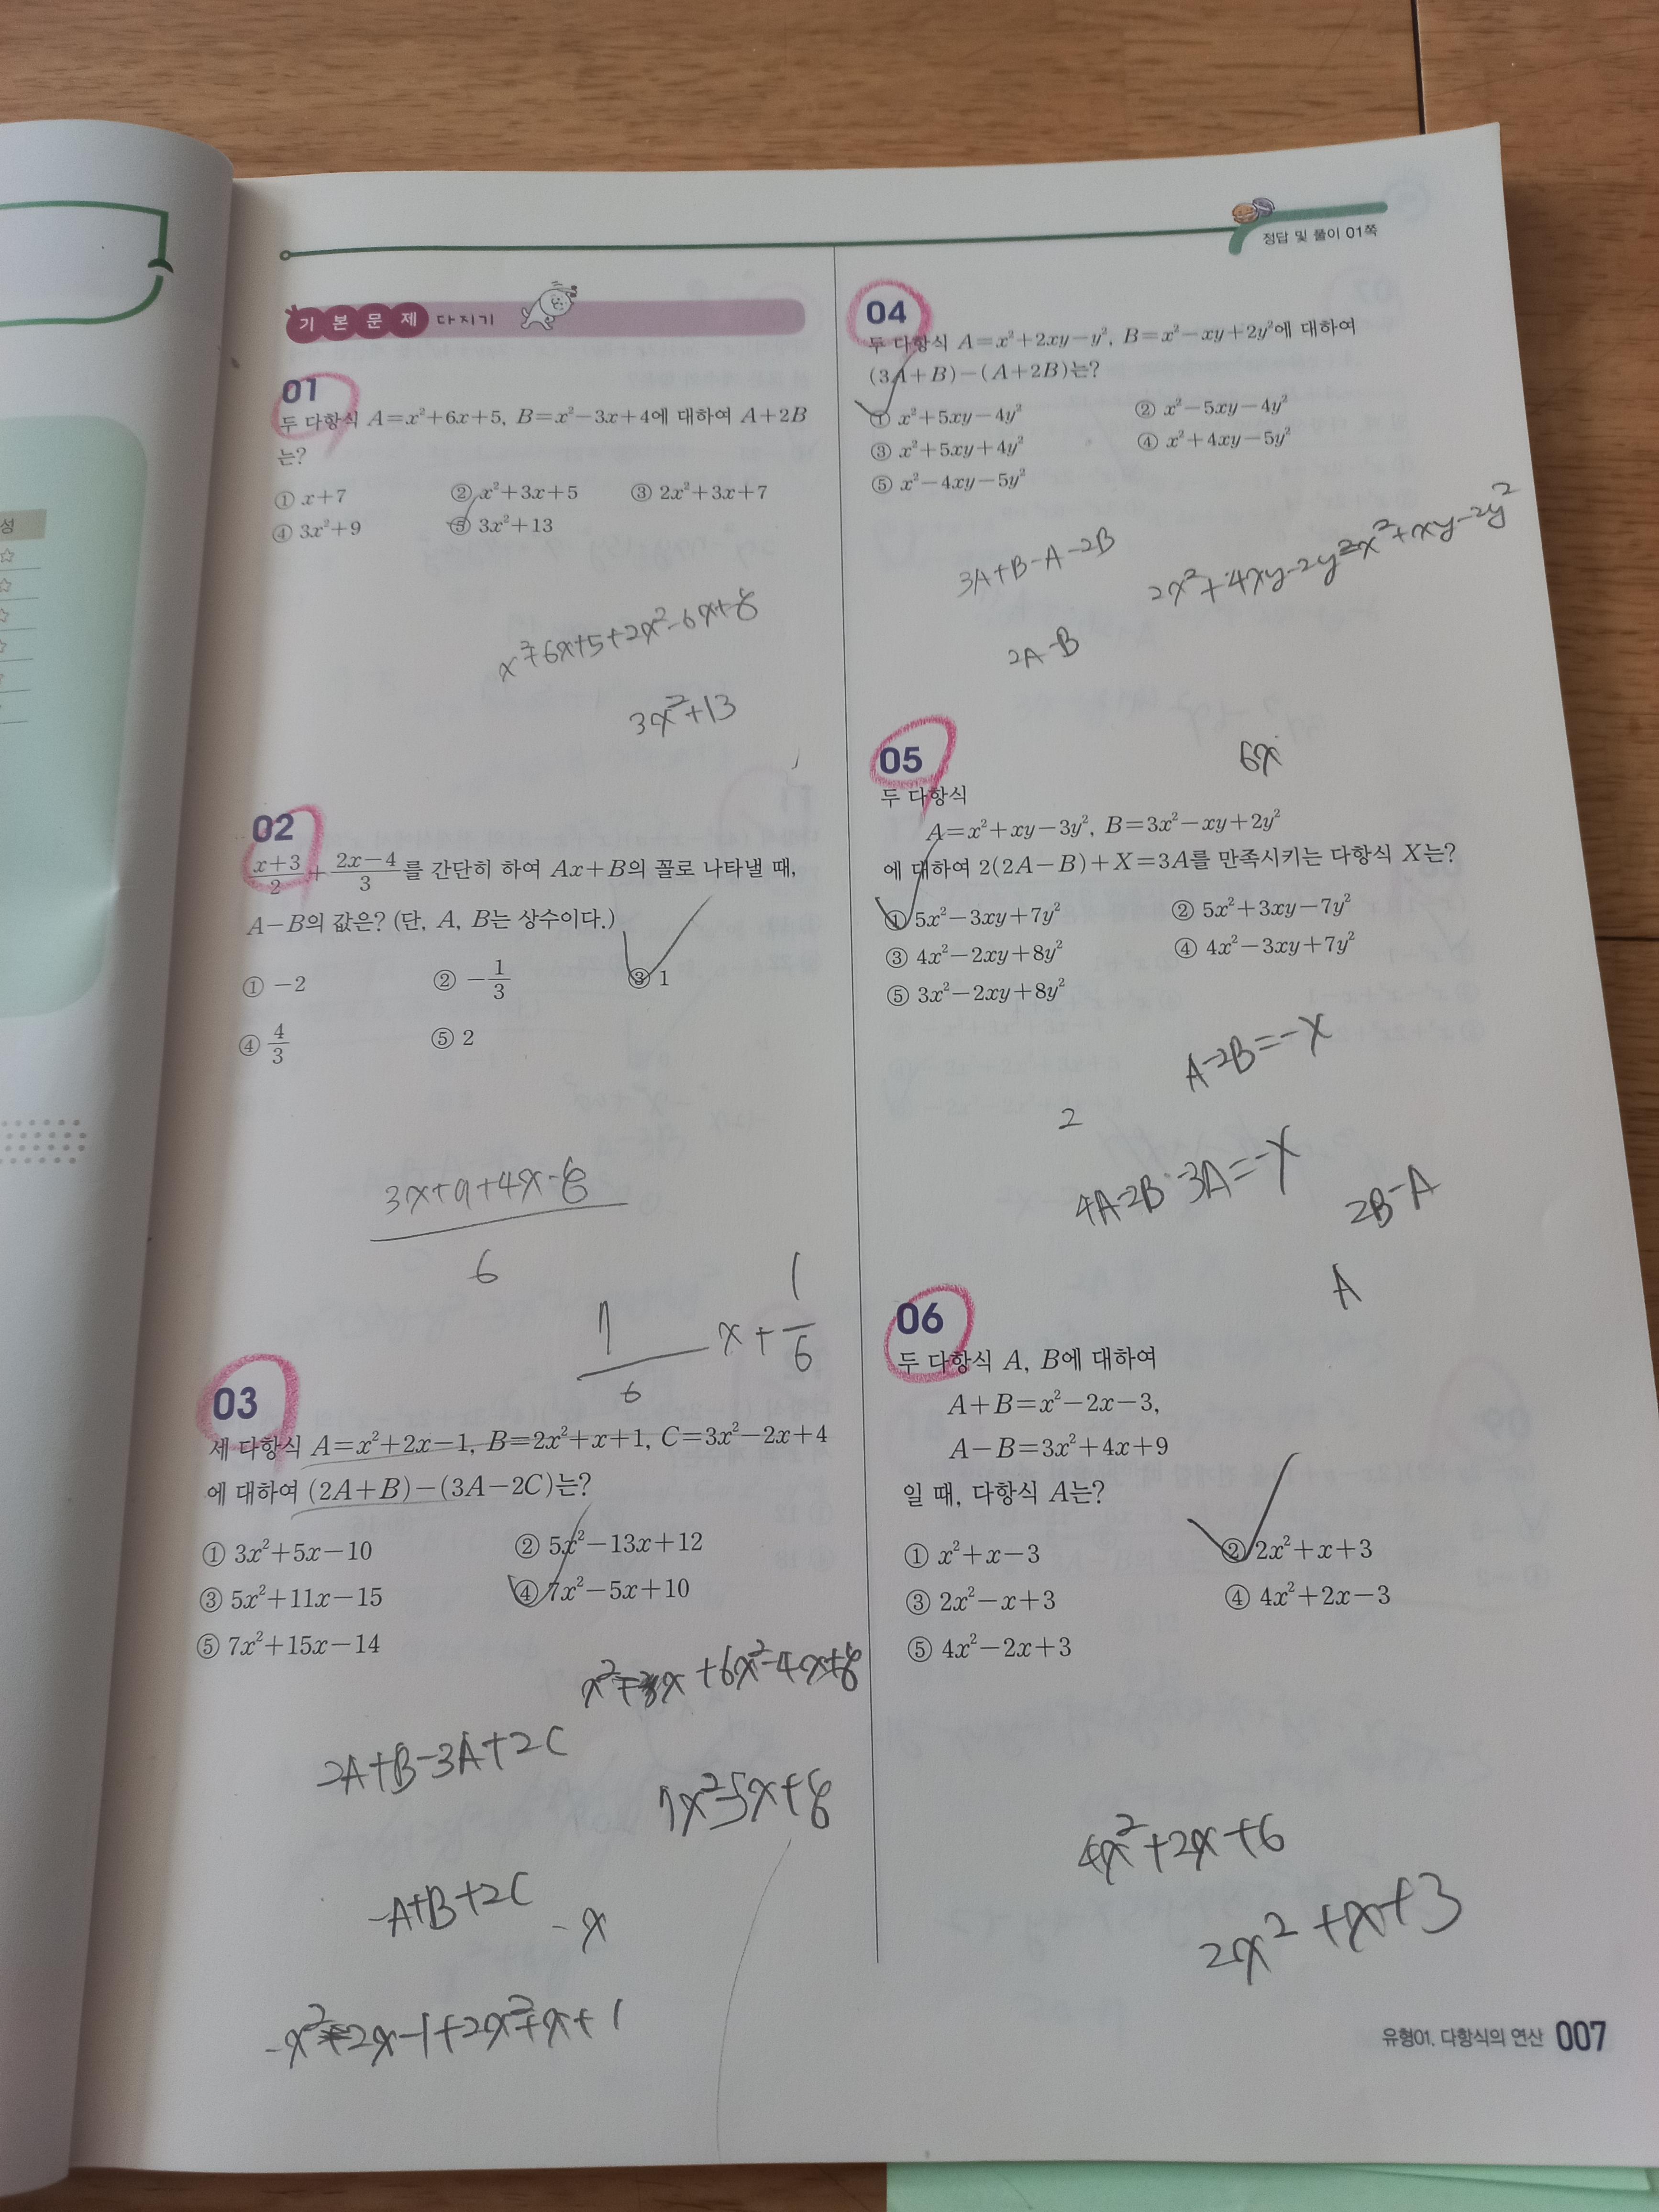 정답 및 풀이 01쪽
성
기본문제 다지기
01
두 다항식 A=x²+6x+5, B=x²-3x+4에 대하여 A+2B
는?
① x+7 ② x²+3x+5 ③ 2x²+3x+7
④ 3x²+9 ⑤ 3x²+13
x²+6x+5+2x²-6x+8
3x²+13
02
(x+3)/2 + (2x-4)/3 를 간단히 하여 Ax+B의 꼴로 나타낼 때,
A-B의 값은? (단, A, B는 상수이다.)
① -2 ② -1/3 ③ 1
④ 4/3 ⑤ 2
3x+9+4x-8
6
7/6 x + 1/6
03
세 다항식 A=x²+2x-1, B=2x²+x+1, C=3x²-2x+4
에 대하여 (2A+B)-(3A-2C)는?
① 3x²+5x-10 ② 5x²-13x+12
③ 5x²+11x-15 ④ 7x²-5x+10
⑤ 7x²+15x-14
+6x²-4x+8
2A+B-3A+2C
7x²-5x+8
-A+B+2C
-x
2x-1+2x²+x+1
04
두 다항식 A=x²+2xy-y², B=x²-xy+2y²에 대하여
(3A+B)-(A+2B)는?
① x²+5xy-4y² ② x²-5xy-4y²
③ x²+5xy+4y² ④ x²+4xy-5y²
⑤ x²-4xy-5y²
3A+B-A-2B
2x²+4xy-2y²-x²+xy-2y²
2A-B
6x
05
두 다항식
A=x²+xy-3y², B=3x²-xy+2y²
에 대하여 2(2A-B)+X=3A를 만족시키는 다항식 X는?
① 5x²-3xy+7y² ② 5x²+3xy-7y²
③ 4x²-2xy+8y² ④ 4x²-3xy+7y²
⑤ 3x²-2xy+8y²
A-2B=-X
2
4A-2B-3A=-X
2B-A
A
06
두 다항식 A, B에 대하여
A+B=x²-2x-3,
A-B=3x²+4x+9
일 때, 다항식 A는?
① x²+x-3 ② 2x²+x+3
③ 2x²-x+3 ④ 4x²+2x-3
⑤ 4x²-2x+3
4x²+2x+6
2x²+x+3
유형01. 다항식의 연산 007